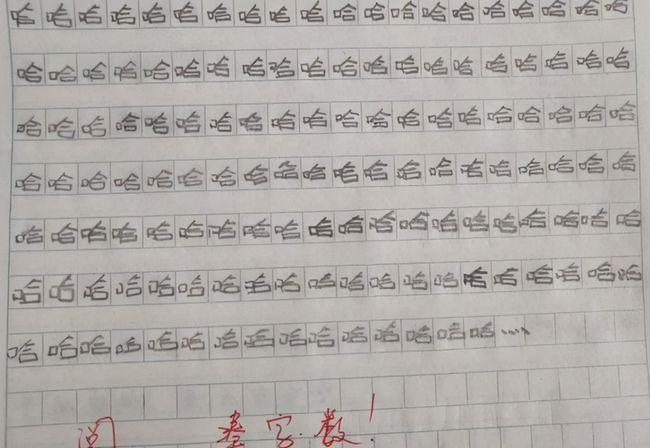 哈哈哈哈哈哈哈哈哈哈哈哈哈哈哈哈哈哈哈哈
哈哈哈哈哈哈哈哈哈哈哈哈哈哈哈哈哈哈哈哈
哈哈哈哈哈哈哈哈哈哈哈哈哈哈哈哈哈哈哈哈
哈哈哈哈哈哈哈哈哈哈哈哈哈哈哈哈哈哈哈哈
哈哈哈哈哈哈哈哈哈哈哈哈哈哈哈哈哈哈哈哈
哈哈哈哈哈哈哈哈哈哈哈哈哈哈哈哈哈哈哈哈
哈哈哈哈哈哈哈哈哈哈哈哈哈哈哈……
字数！